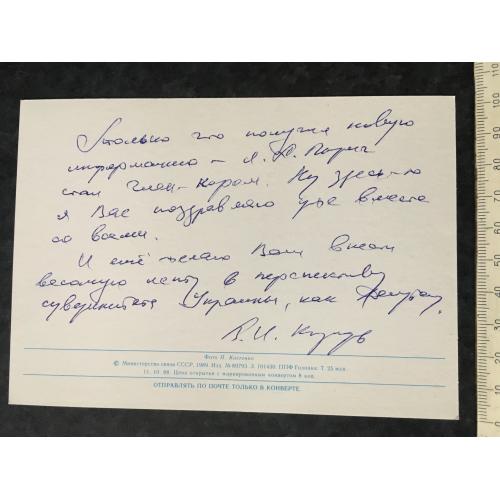 Только что получил новую
информацию – Л. Ю.
стал член-кором. Ну здесь-то
я Вас поздравляю уже вместе
со всеми.
И ещё желаю Вам внести
весомую лепту в перспективу
суверинитета Украины, как депутату.
В. И.
Фото Я. Костенко
© Министерство связи СССР, 1989. Изд. № 89793. З. 101430. ППФ Гознака. Т. 25 млн.
11. 10. 89. Цена открытки с маркированным конвертом 8 коп.
ОТПРАВЛЯТЬ ПО ПОЧТЕ ТОЛЬКО В КОНВЕРТЕ